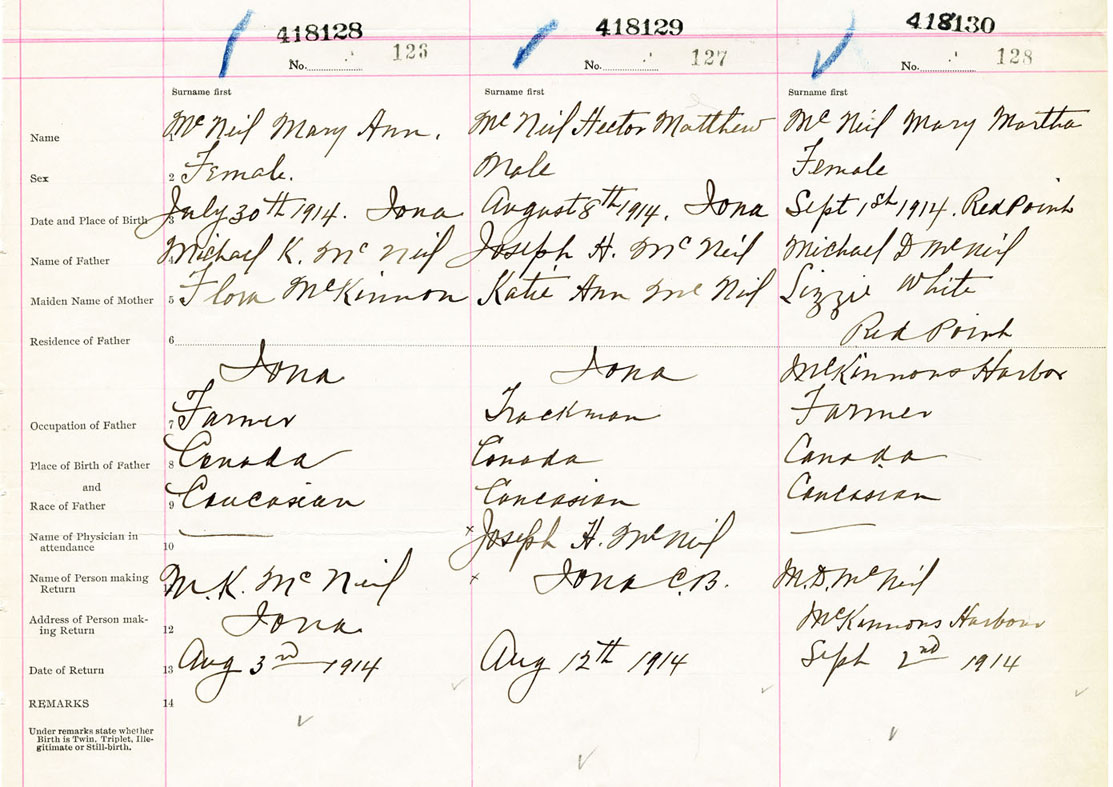 418128 418129 418130
No. 126 No. 127 No. 128
Surname first Surname first Surname first
Name 1 McNeil Mary Ann. McNeil Hector Matthew McNeil Mary Martha
Sex 2 Female. Male Female
Date and Place of Birth 3 July 30th 1914. Iona August 8th 1914. Iona Sept 1st 1914. Red Point
Name of Father 4 Michael K. McNeil Joseph H. McNeil Michael D McNeil
Maiden Name of Mother 5 Flora McKinnon Katie Ann McNeil Lizzie White
Red Point
Residence of Father 6
Iona Iona McKinnons Harbor
Occupation of Father 7 Farmer Trackman Farmer
Place of Birth of Father 8 Canada Canada Canada
and
Race of Father 9 Caucasian Caucasian Caucasian
Name of Physician in
attendance 10 — x Joseph H. McNeil —
Name of Person making
Return 11 M.K. McNeil x Iona C.B. M.D. McNeil
Address of Person mak-
ing Return 12 Iona McKinnons Harbour
Date of Return 13 Aug 3rd 1914 Aug 12th 1914 Sept 2nd 1914
REMARKS 14
Under remarks state whether
Birth is Twin, Triplet, Ille-
gitimate or Still-birth.